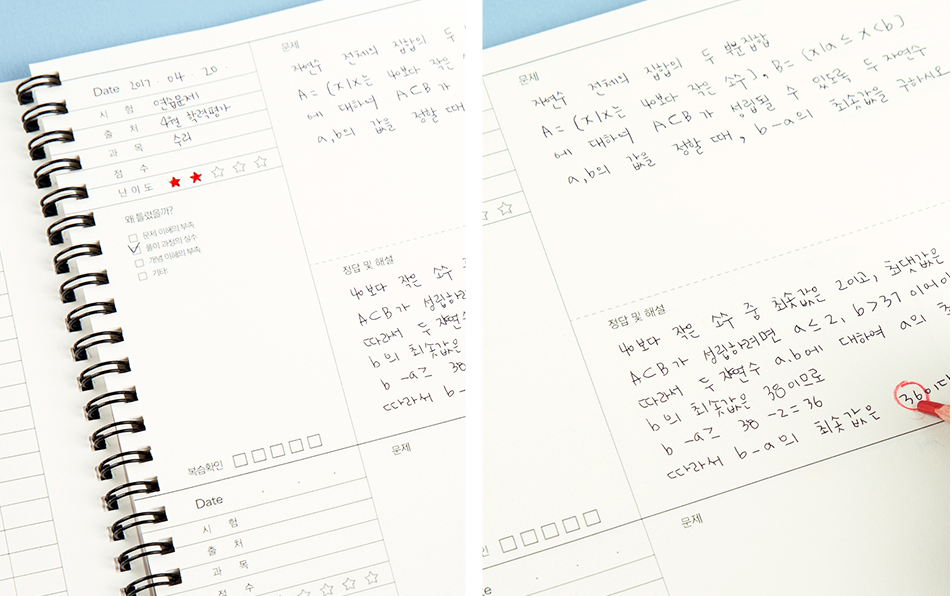 Date 2017 . 04 . 20 .
시 험 연습문제
출 처 4월 학력평가
과 목 수리
점 수
난 이 도
왜 틀렸을까?
문제 이해의 부족
풀이 과정의 실수
개념 이해의 부족
기타:
복습확인
문제
자연수 전체의 집합의 두
A = {x|x는 40보다 작은
에 대하여 A⊂B가
a,b의 값을 정할 때
정답 및 해설
40보다 작은 소수
A⊂B가 성립하려
따라서 두 자연수
b의 최솟값은
b - a ≥ 38
따라서 b -
Date . . .
시 험
출 처
과 목
점 수
문제
문제
자연수 전체의 집합의 두 부분집합
A = {x|x는 40보다 작은 소수}, B = {x|a ≤ x < b}
에 대하여 A⊂B가 성립될 수 있도록 두 자연수
a,b의 값을 정할 때, b-a의 최솟값을 구하시오
정답 및 해설
40보다 작은 소수 중 최솟값은 2이고, 최댓값은
A⊂B가 성립하려면 a ≤ 2, b > 37 이어야
따라서 두 자연수 a.b에 대하여 a의 최
b의 최솟값은 38이므로
b - a ≥ 38 - 2 = 36
따라서 b - a의 최솟값은 36이다
인
e . . .
문제